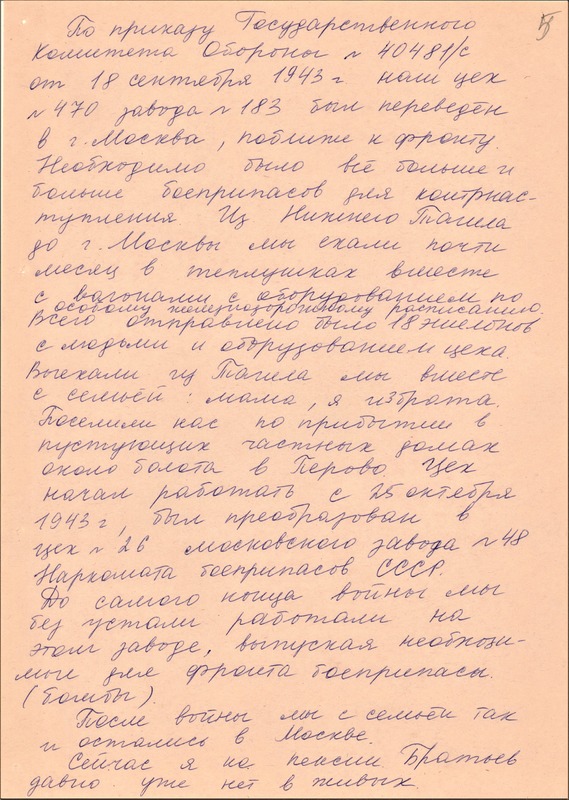 5
По приказу Государственного
Комитета Обороны № 40481/с
от 18 сентября 1943 г наш цех
№ 470 завода № 183 был переведен
в г. Москва, поближе к фронту.
Необходимо было всё больше и
больше боеприпасов для контрнас-
тупления Из Нижнего Тагила
до г. Москвы мы ехали почти
месяц в теплушках вместе
с вагонами с оборудованием по
особому железнодорожному расписанию.
Всего отправлено было 18 эшелонов
с людьми и оборудованием цеха.
Выехали из Тагила мы вместе
с семьёй: мама, я и братья.
Поселили нас по прибытии в
пустующих частных домах
около болота в Перово. Цех
начал работать с 25 октября
1943 г, был преобразован в
цех № 26 московского завода № 48
Наркомата боеприпасов СССР.
До самого конца войны мы
без устали работали на
этом заводе, выпуская необходи-
мые для фронта боеприпасы.
(бомбы).
После войны мы с семьёй так
и остались в Москве.
Сейчас я на пенсии Братьев
давно уже нет в живых.